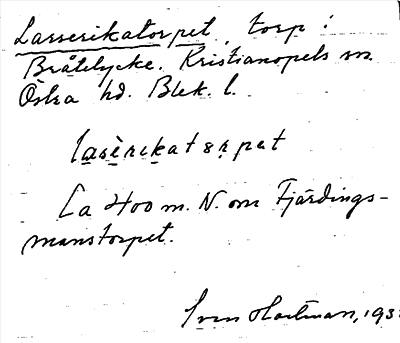 Lasserikatorpet, torp i
Bråtelycke. Kristianopels sn.
Östra hd. Blek. l.
lasèrikatørpet
Ca 400 m. N. om Fjärdings-
manstorpet.
Sven Hartman, 193